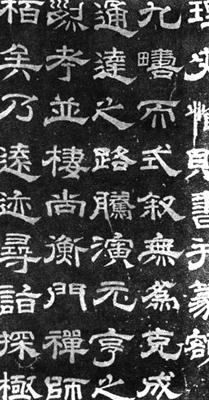 理則書于篆額
九疇而式叙無為克成
通達之路騰演元亨之
孝並棲尚衡門禪師
栢矣乃遠迹尋詣探極